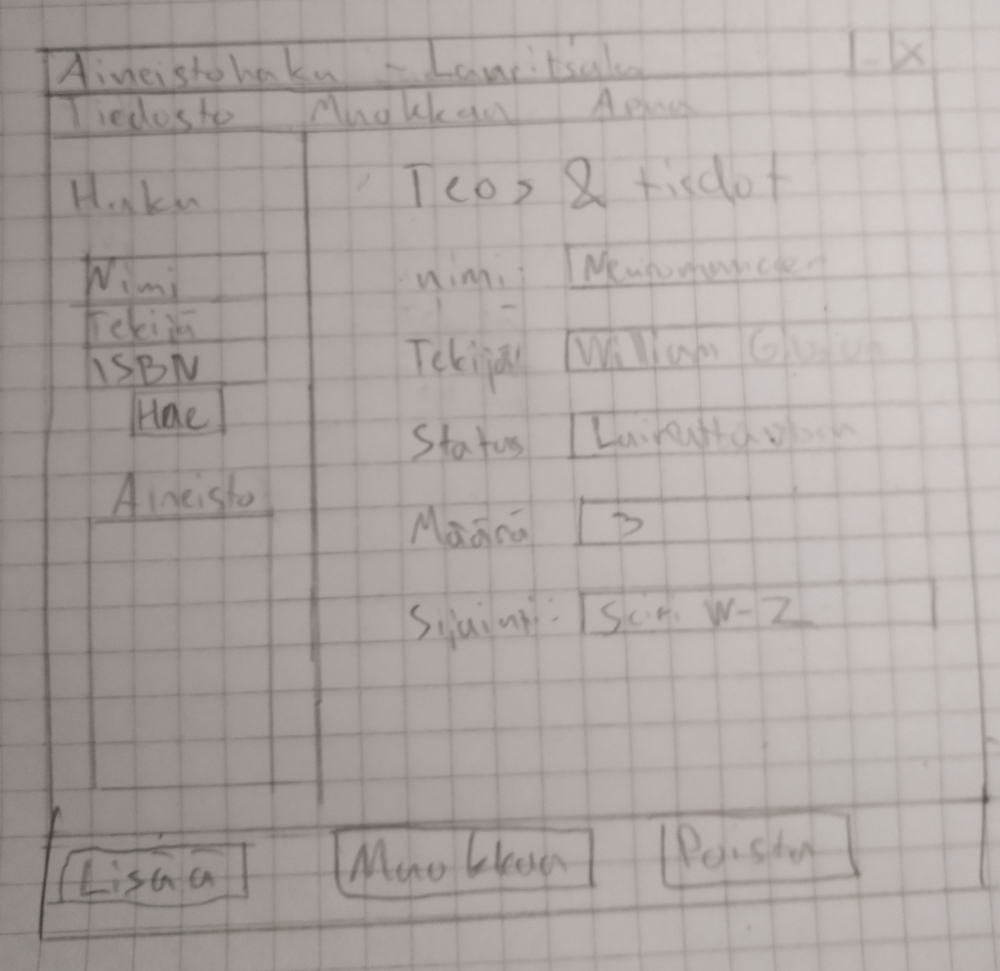 Aineistohaku - Lauritsala - X
Tiedosto Muokkaa Apua
Haku
Nimi
Tekijä
ISBN
Hae
Aineisto
Teos & tiedot
nimi: Neuromancer
Tekijä: William Gibson
Status Lainattavissa
Määrä 3
Sijainti: Scifi W-Z
Lisää Muokkaa Poista